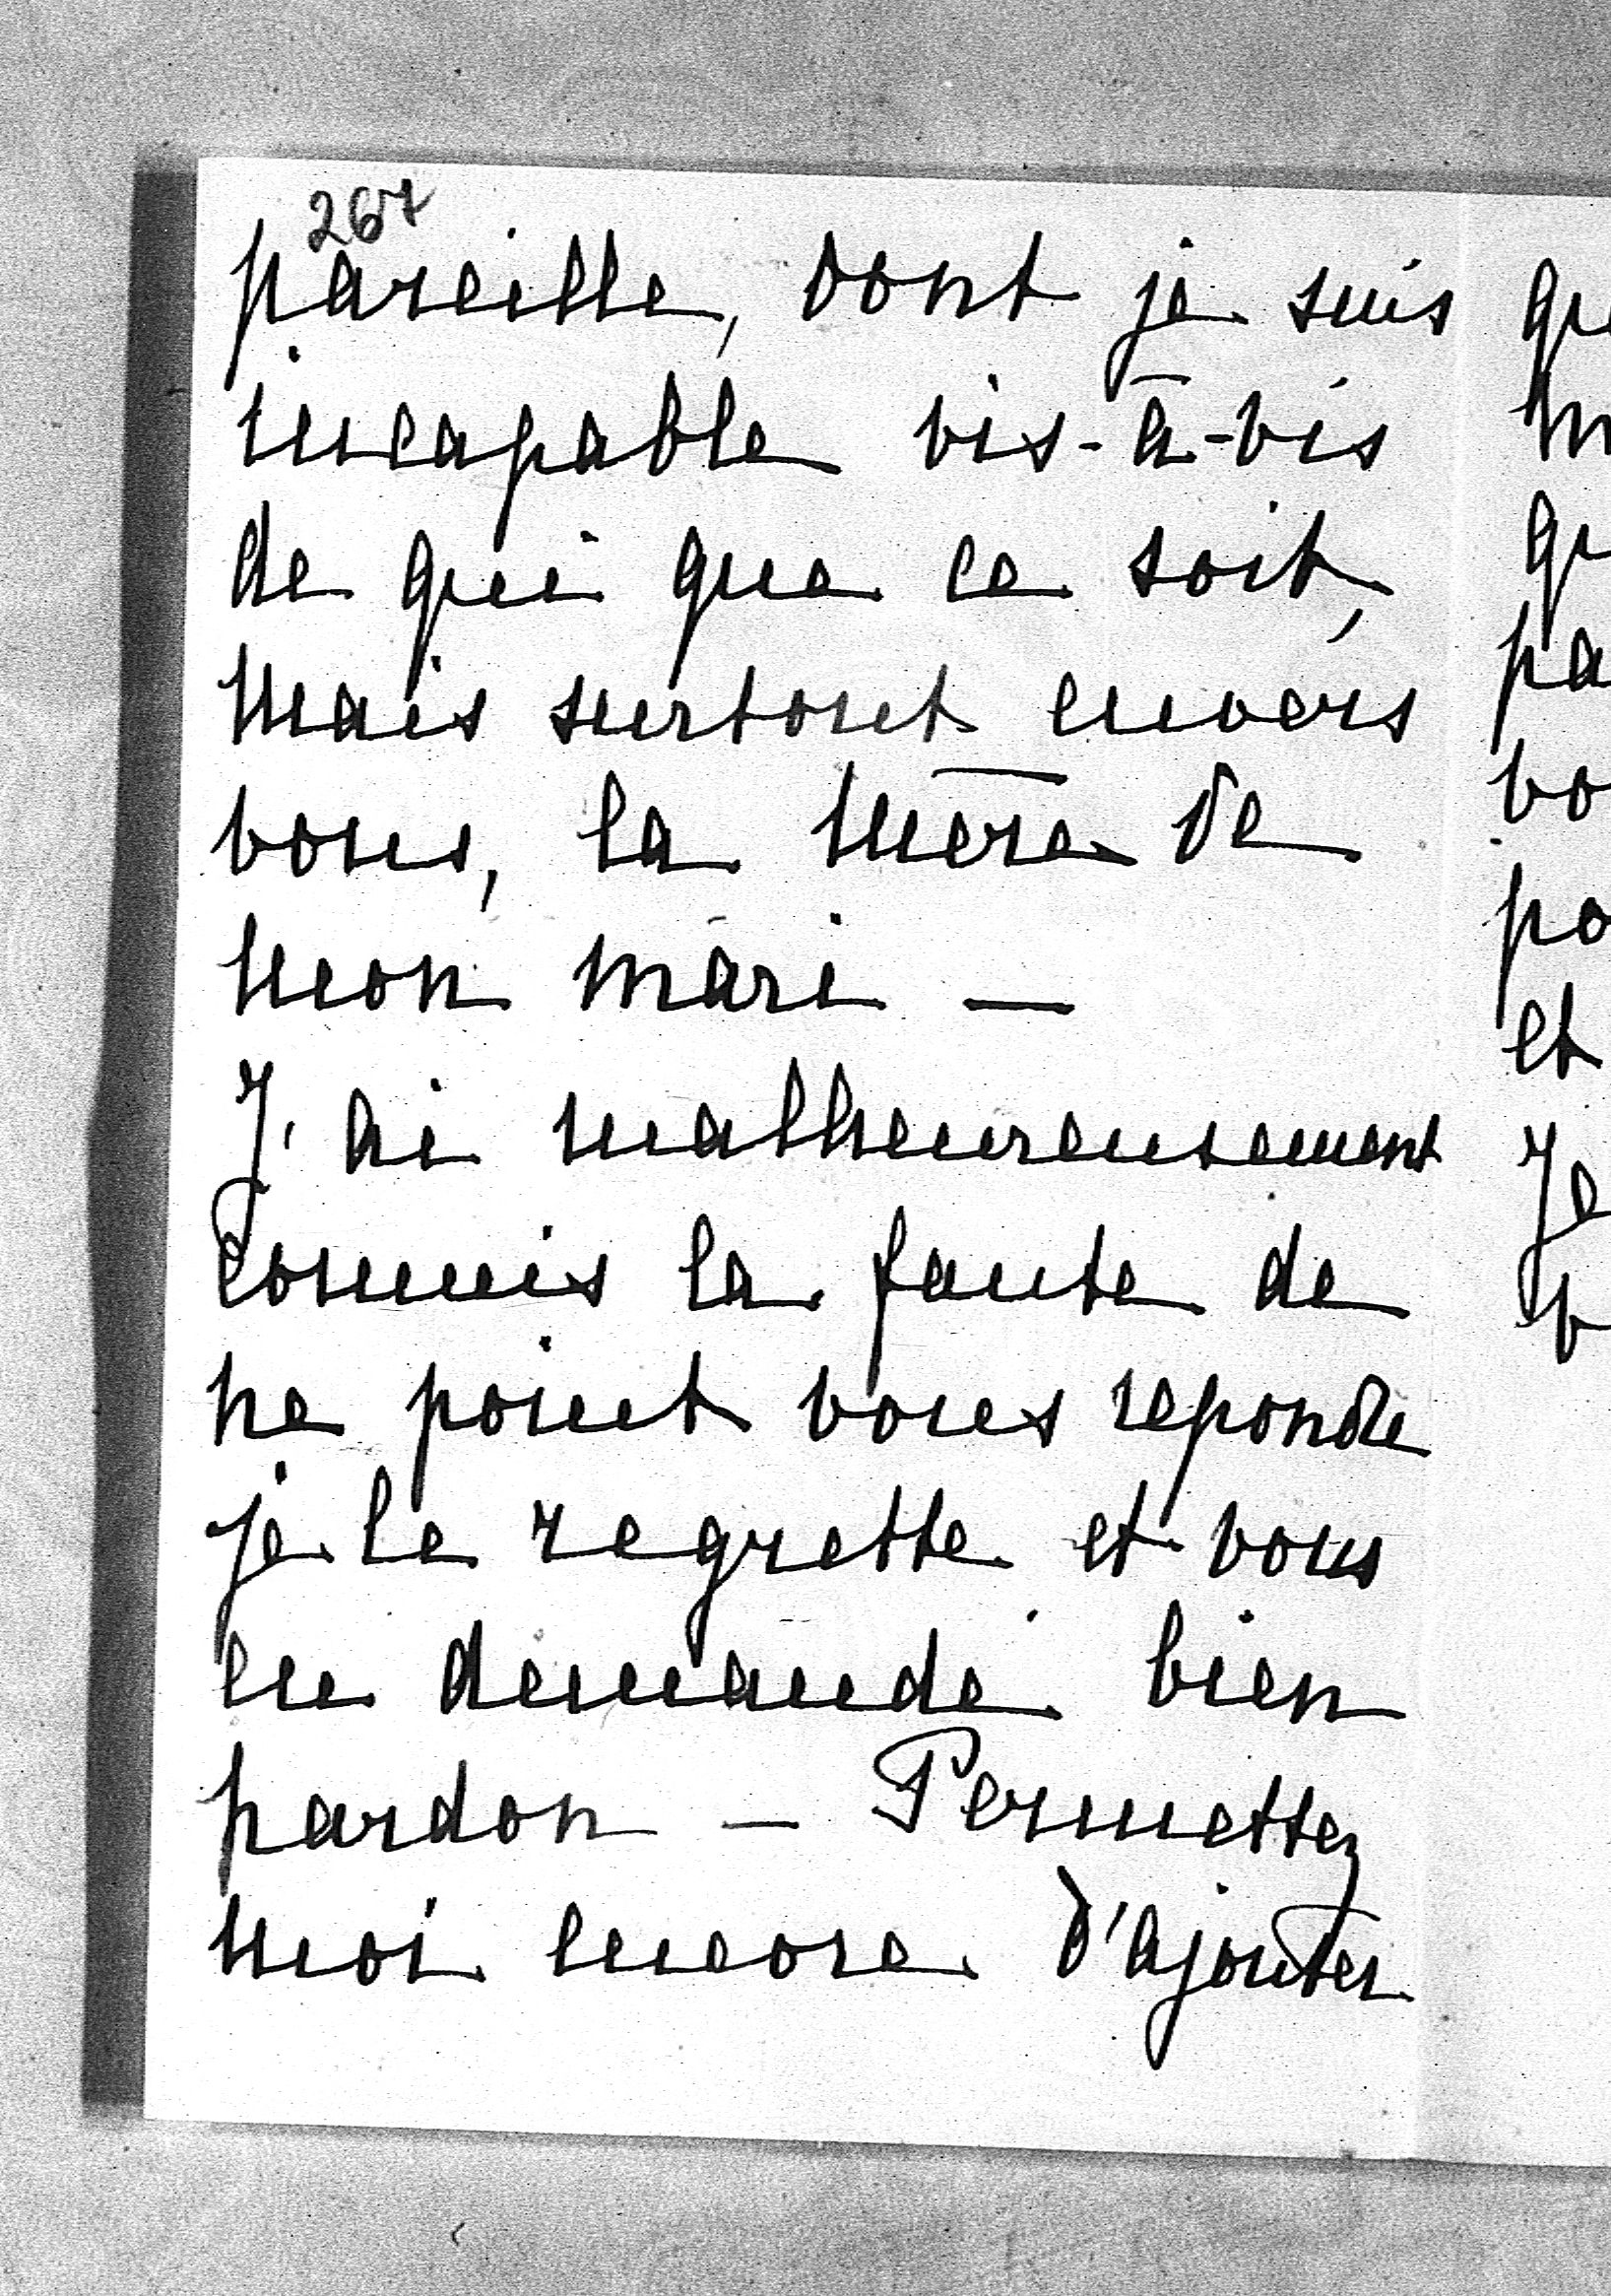 267
pareille, dont je suis
incapable vis-à-vis
de qui que ce soit,
mais surtout envers
vous, la mère de
mon mari —
J'ai malheureusement
commis la faute de
ne point vous repondre
je le regrette et vous
en demande bien
pardon — Permettez
moi encore d'ajouter